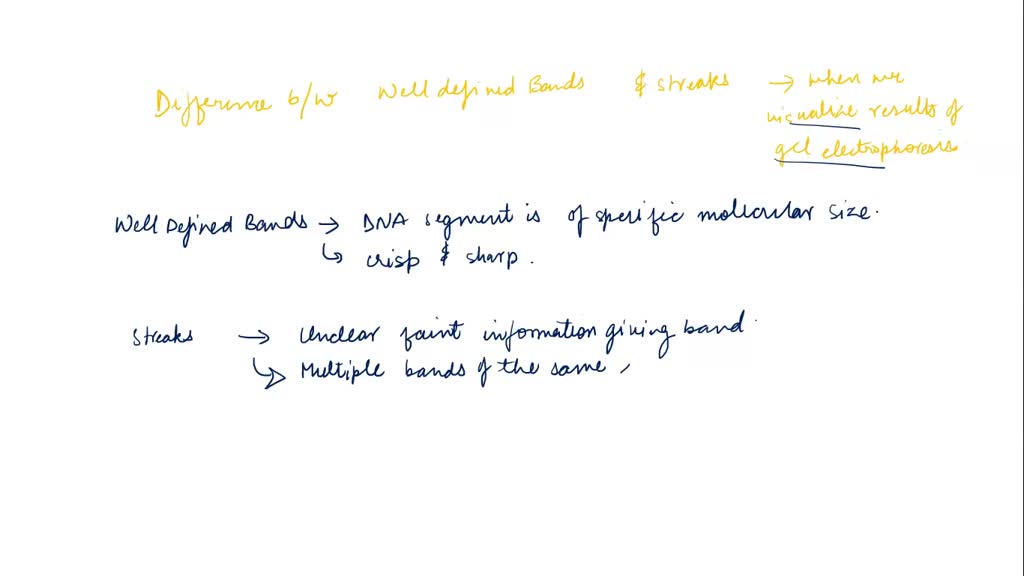 Difference b/w Well defined Bands & streaks → when we
visualize results of
gel electrophoresis
Well Defined Bands → DNA segment is of specific molecular size.
↳ crisp & sharp.
Streaks → Unclear faint information giving band.
↳ Multiple bands of the same